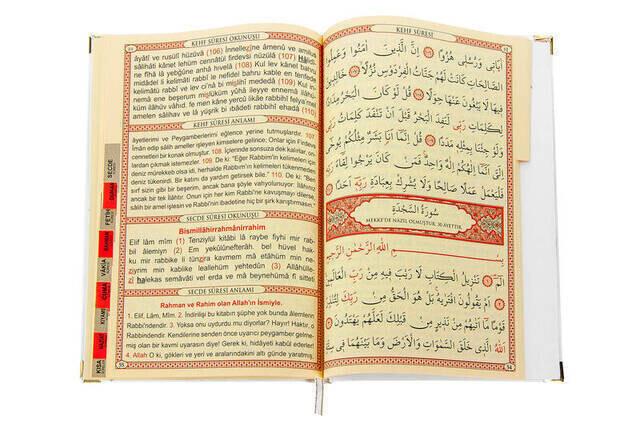 KEHF SÛRESİ OKUNUŞU
âyâtî ve rusulî hüzüvâ (106) İnnellezîne âmenû ve amilus
sâlihâti kânet lehüm cennâtül firdevsi nüzülâ (107) Hâlidî-
ne fîhâ lâ yebğûne anhâ hıvelâ (108) Kul lev kânel bahru
midâdel li kelimâti rabbî le nefidel bahru kable en tenfede
kelimâtü rabbî ve lev ci'nâ bi mislihî mededâ (109) Kul in-
nemâ ene beşerum mislüküm yûhâ ileyye ennemâ ilâhü-
küm ilâhüv vâhid. fe men kâne yercû likâe rabbihî felya'mel
amelen sâlihav ve lâ yüşrik bi ıbâdeti rabbihî ehadâ (110)
KEHF SÛRESİ ANLAMI
âyetlerimi ve Peygamberlerimi eğlence yerine tutmuşlardır. 107.
İman edip salih ameller işleyen kimselere gelince; Onlar için Firdevs
cennetleri bir konak olmuştur. 108. İçlerinde sonsuza dek kalırlar, on-
lardan çıkmak istemezler. 109. De ki: "Eğer Rabbim'in kelimeleri için
deniz mürekkep olsa idi, herhalde Rabbim'in kelimeleri tükenmeden
deniz tükenirdi. Bir katını da yardım getirsek bile." 110. De ki: "Ben
SECDE SÛRESİ OKUNUŞU
Bismillâhirrahmânirrahîm
Elif lâm mîm (1) Tenzîlül kitâbi lâ raybe fîyhi mir rab-
bil âlemîyn (2) Em yekûlûnefterâh. bel hüvel hak-
ku mir rabbike li tünzira kavmem mâ etâhüm min ne-
zîyrim min kablike leallehüm yehtedûn (3) Allâhülle-
zî halekas semâvâti vel erda ve mâ beynehümâ fî sitteti
SECDE SÛRESİ ANLAMI
Rahman ve Rahim olan Allah'ın İsmiyle.
1. Elif, Lâm, Mîm. 2. İndirilişi bu kitabın şüphe yok bunda âlemlerin
Rabbi'ndendir. 3. Yoksa onu uydurdu mu diyorlar? Hayır! Haktır, o
Rabbindendir. Kendilerine senden önce uyarıcı peygamber gelme-
miş olan bir kavmi uyarasın diye! Gerek ki, hidâyeti kabûl ederler!
4. Allah O ki, gökleri ve yeri ve aralarındakini altı günde yaratmış
55
SECDE
FETİH
VAKIA
CUMA
KISA
KEHF SÛRESİ
اٰيَاتٖي وَرُسُلٖي هُزُوًا اِنَّ الَّذٖينَ اٰمَنُوا وَعَمِلُوا
الصَّالِحَاتِ كَانَتْ لَهُمْ جَنَّاتُ الْفِرْدَوْسِ نُزُلًا خَالِدٖينَ
فٖيهَا لَا يَبْغُونَ عَنْهَا حِوَلًا قُلْ لَوْ كَانَ الْبَحْرُ مِدَادًا
لِكَلِمَاتِ رَبّٖي لَنَفِدَ الْبَحْرُ قَبْلَ اَنْ تَنْفَدَ كَلِمَاتُ رَبّٖي
وَلَوْ جِئْنَا بِمِثْلِهٖ مَدَدًا قُلْ اِنَّمَا اَنَا بَشَرٌ مِثْلُكُمْ يُوحٰى
اِلَيَّ اَنَّمَا اِلٰهُكُمْ اِلٰهٌ وَاحِدٌ فَمَنْ كَانَ يَرْجُوا لِقَاءَ رَبِّهٖ
فَلْيَعْمَلْ عَمَلًا صَالِحًا وَلَا يُشْرِكْ بِعِبَادَةِ رَبِّهٖ اَحَدًا
سُورَةُ السَّجْدَةِ
MEKKE'DE NAZİL OLMUŞTUR. 30 AYETTİR.
بِسْمِ اللّٰهِ الرَّحْمٰنِ الرَّحٖيمِ
الٓمٓ تَنْزٖيلُ الْكِتَابِ لَا رَيْبَ فٖيهِ مِنْ رَبِّ الْعَالَمٖينَ
اَمْ يَقُولُونَ افْتَرٰيهُ بَلْ هُوَ الْحَقُّ مِنْ رَبِّكَ لِتُنْذِرَ
قَوْمًا مَا اَتٰيهُمْ مِنْ نَذٖيرٍ مِنْ قَبْلِكَ لَعَلَّهُمْ يَهْتَدُونَ
اَللّٰهُ الَّذٖي خَلَقَ السَّمٰوَاتِ وَالْاَرْضَ وَمَا بَيْنَهُمَا فٖي
54